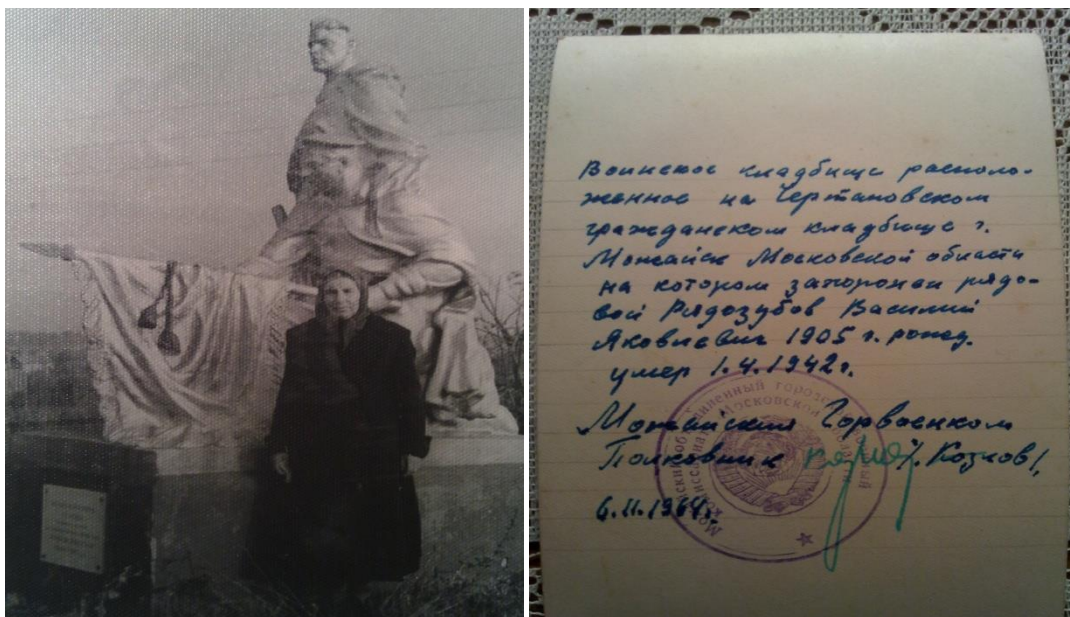 Воинское кладбище располо-
женное на Чертановском
гражданском кладбище г.
Можайск Московской области
на котором захоронен рядо-
вой Рядозубов Василий
Яковлевич 1905 г. рожд.
умер 1.4.1942 г.
Можайский Горвоенком
Полковник /. Козлов /.
6.11.1964г.
объединенный городской
Московской области